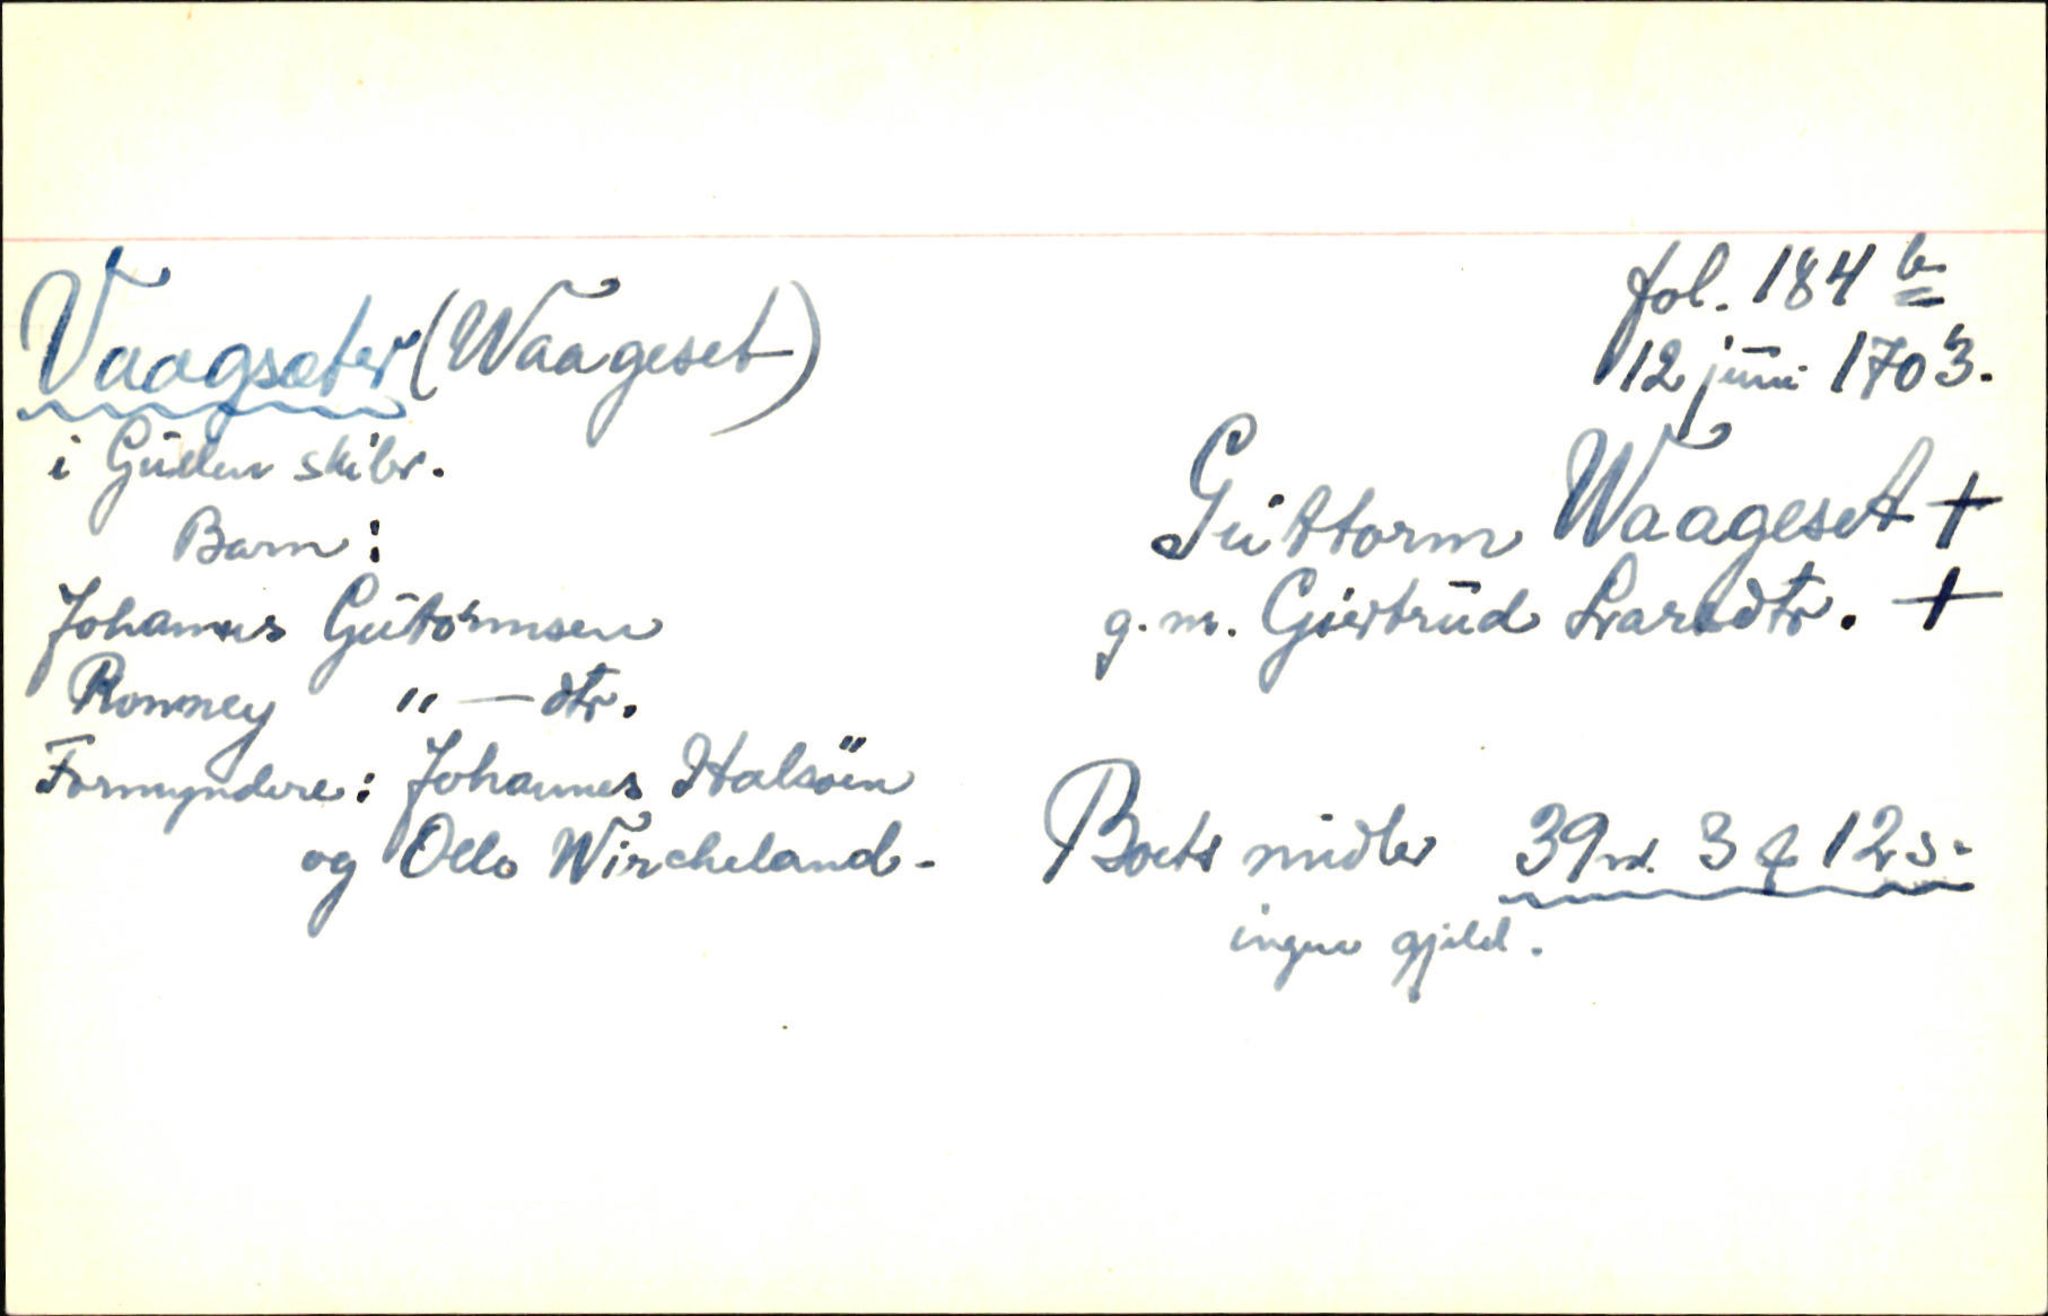 fol. 184 b
12 juni 1703.
Vaagsæter (Waageset)
i Gulen skibr.
Barn:
Johannes Gutormsen
Ronney " — dtr.
Formyndere: Johannes Halsöen
og Olle Wircheland -
Guttorm Waageset +
g. m. Giertrud dtr. +
Boets midler 39 rd. 3 ʠ 12 s.
ingen gjeld.